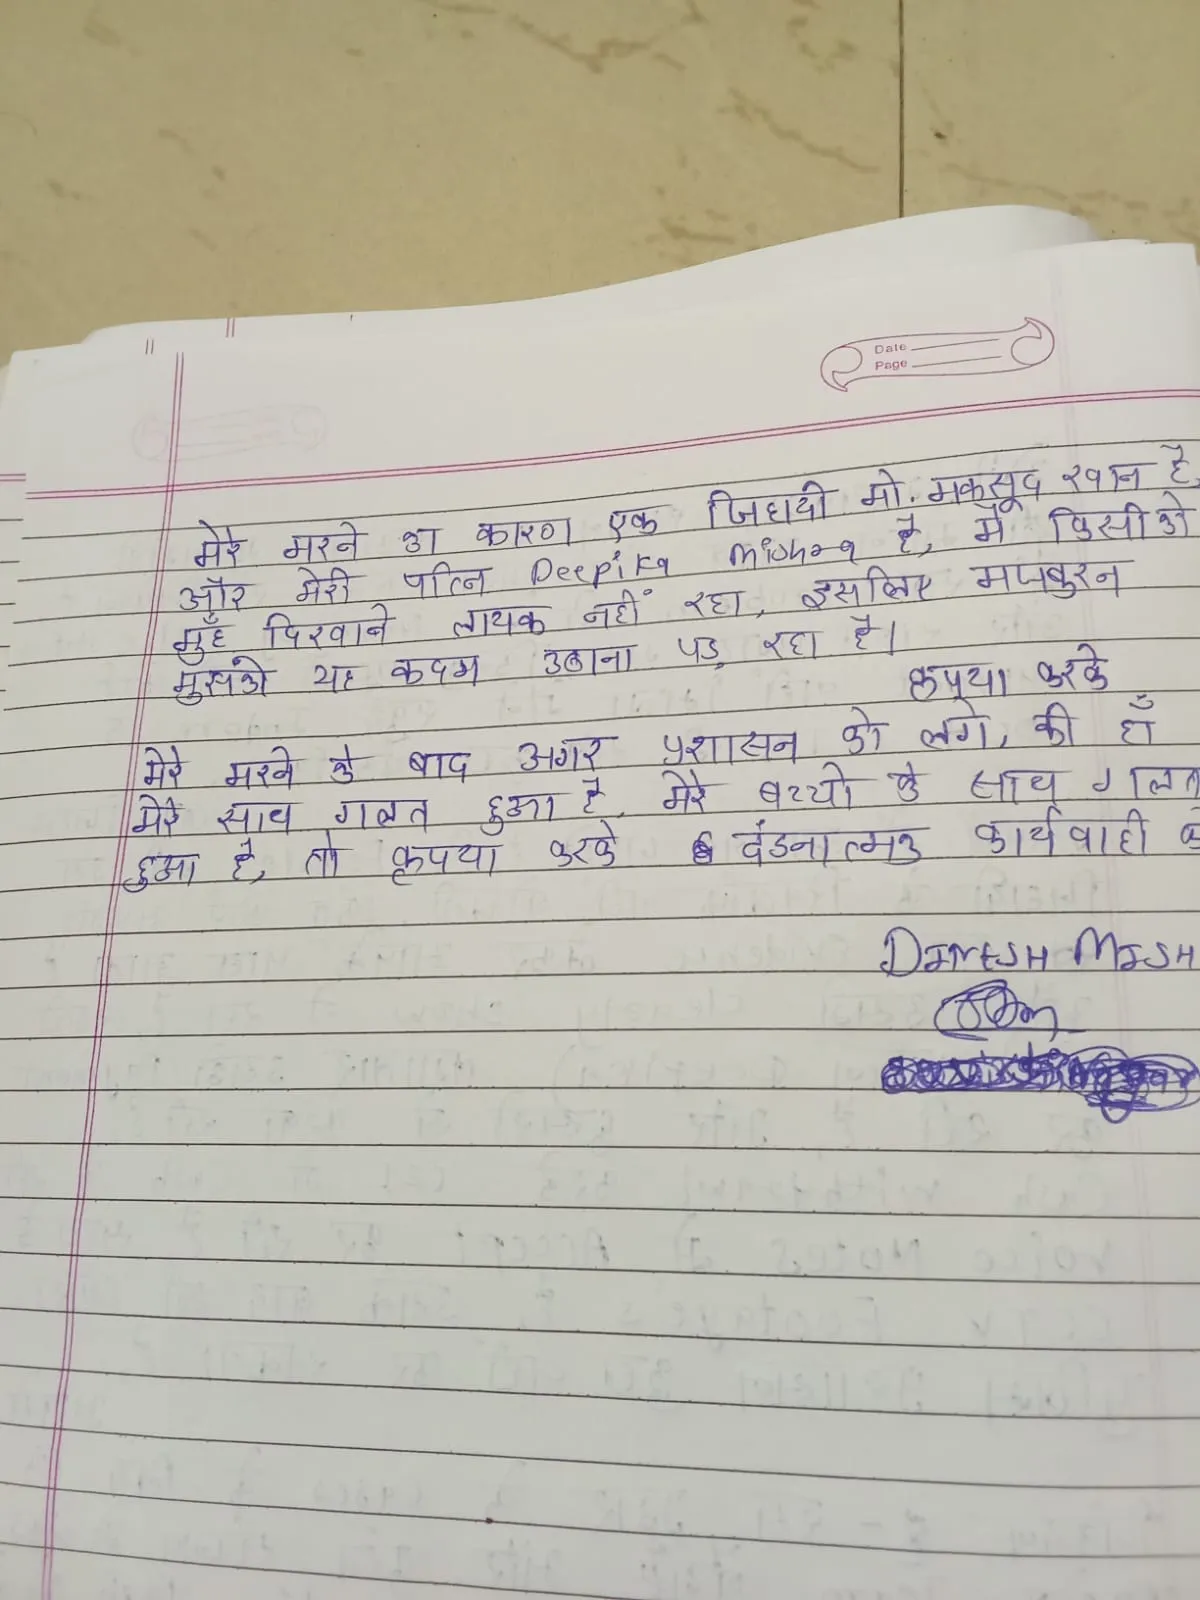 Date
Page
मेरे मरने का कारण एक जिहादी मो. मकसूद खान है,
और मेरी पत्नि Deepika Mishra है, मैं किसीको
मुँह दिखाने लायक नहीं रहा, इसलिए मजबुरन
मुझको यह कदम उठाना पड़ रहा है।
कृपया करके
मेरे मरने के बाद अगर प्रशासन को लगे, की हाँ
मेरे साथ गलत हुआ है, मेरे बच्चो के साथ गलत
हुआ है, तो कृपया करके दंडनात्मक कार्यवाही
DINESH MISH